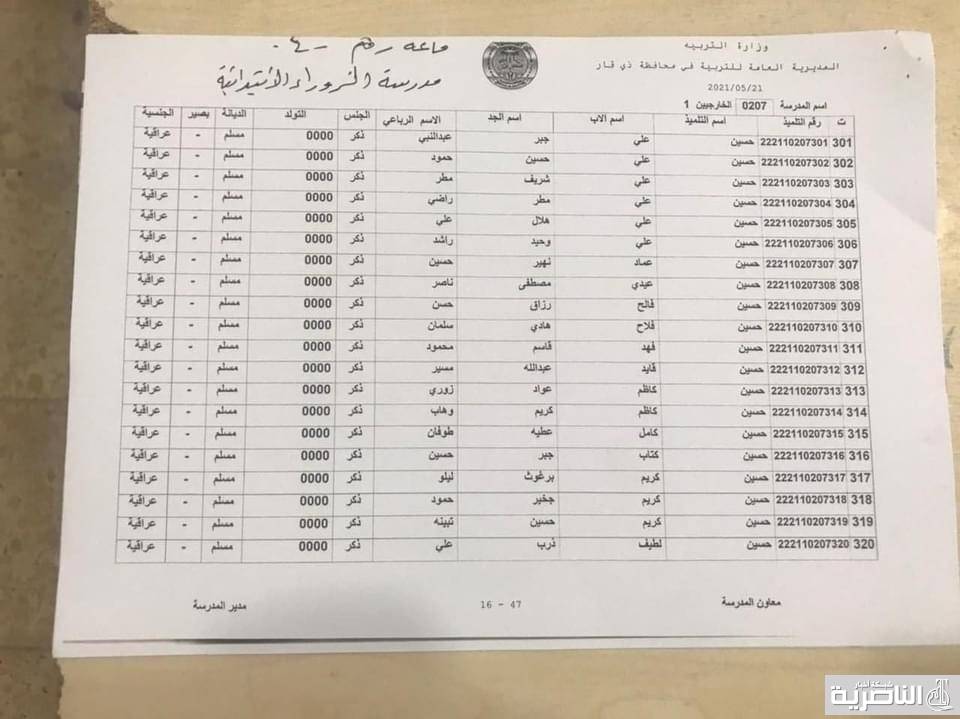 وزارة التربيه
قاعه رقم -٤-
المديرية العامة للتربية في محافظة ذي قار
مدرسة الزوراء الابتدائية
2021/05/21
اسم المدرسة 0207 الخارجيين 1
ت رقم التلميذ اسم التلميذ اسم الاب اسم الجد الاسم الرباعي الجنس التولد الديانة بصير الجنسية
301 222110207301 حسين علي جبر عبدالنبي ذكر 0000 مسلم - عراقية
302 222110207302 حسين علي حسين حمود ذكر 0000 مسلم - عراقية
303 222110207303 حسين علي شريف مطر ذكر 0000 مسلم - عراقية
304 222110207304 حسين علي مطر راضي ذكر 0000 مسلم - عراقية
305 222110207305 حسين علي هلال علي ذكر 0000 مسلم - عراقية
306 222110207306 حسين علي وحيد راشد ذكر 0000 مسلم - عراقية
307 222110207307 حسين عماد نهير حسين ذكر 0000 مسلم - عراقية
308 222110207308 حسين عيدي مصطفى ناصر ذكر 0000 مسلم - عراقية
309 222110207309 حسين فالح رزاق حسن ذكر 0000 مسلم - عراقية
310 222110207310 حسين فلاح هادي سلمان ذكر 0000 مسلم - عراقية
311 222110207311 حسين فهد قاسم محمود ذكر 0000 مسلم - عراقية
312 222110207312 حسين قايد عبدالله مسير ذكر 0000 مسلم - عراقية
313 222110207313 حسين كاظم عواد زوري ذكر 0000 مسلم - عراقية
314 222110207314 حسين كاظم كريم وهاب ذكر 0000 مسلم - عراقية
315 222110207315 حسين كامل عطيه طوفان ذكر 0000 مسلم - عراقية
316 222110207316 حسين كتاب جبر حسين ذكر 0000 مسلم - عراقية
317 222110207317 حسين كريم برغوث ليلو ذكر 0000 مسلم - عراقية
318 222110207318 حسين كريم جخير حمود ذكر 0000 مسلم - عراقية
319 222110207319 حسين كريم حسين ثبينه ذكر 0000 مسلم - عراقية
320 222110207320 حسين لطيف ذرب علي ذكر 0000 مسلم - عراقية
معاون المدرسة 16 - 47 مدير المدرسة
شبكة أخبار
الناصرية